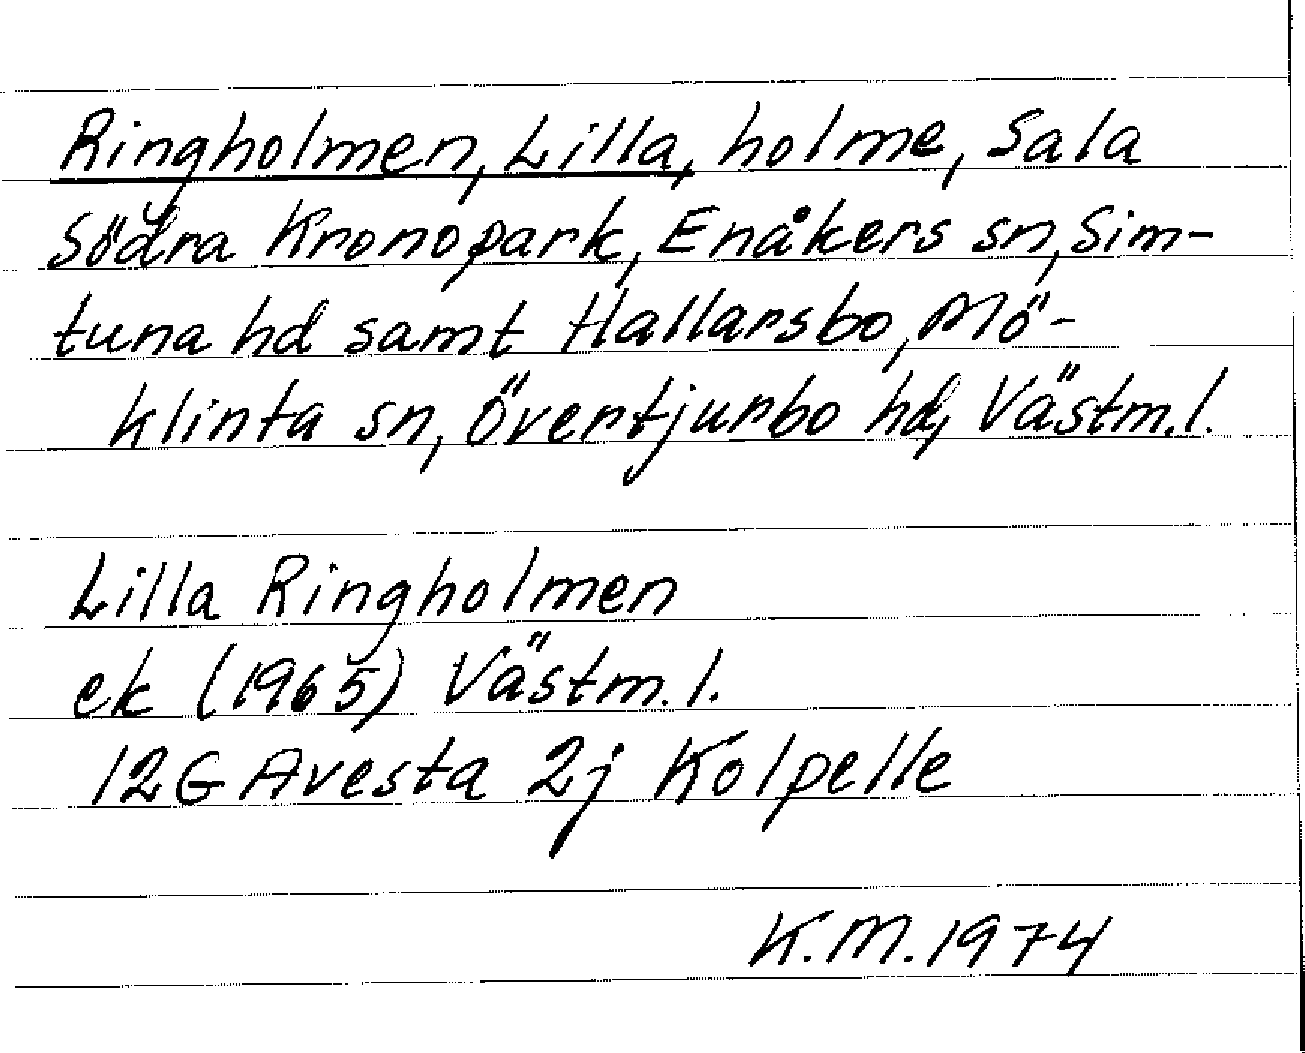 Ringholmen, Lilla, holme, Sala
Södra Kronopark, Enåkers sn, Sim-
tuna hd samt Hallarsbo, Mö-
klinta sn, Övertjurbo hd, Västm.l.
Lilla Ringholmen
ek (1965) Västm.l.
12G Avesta 2j Kolpelle
K.M. 1974